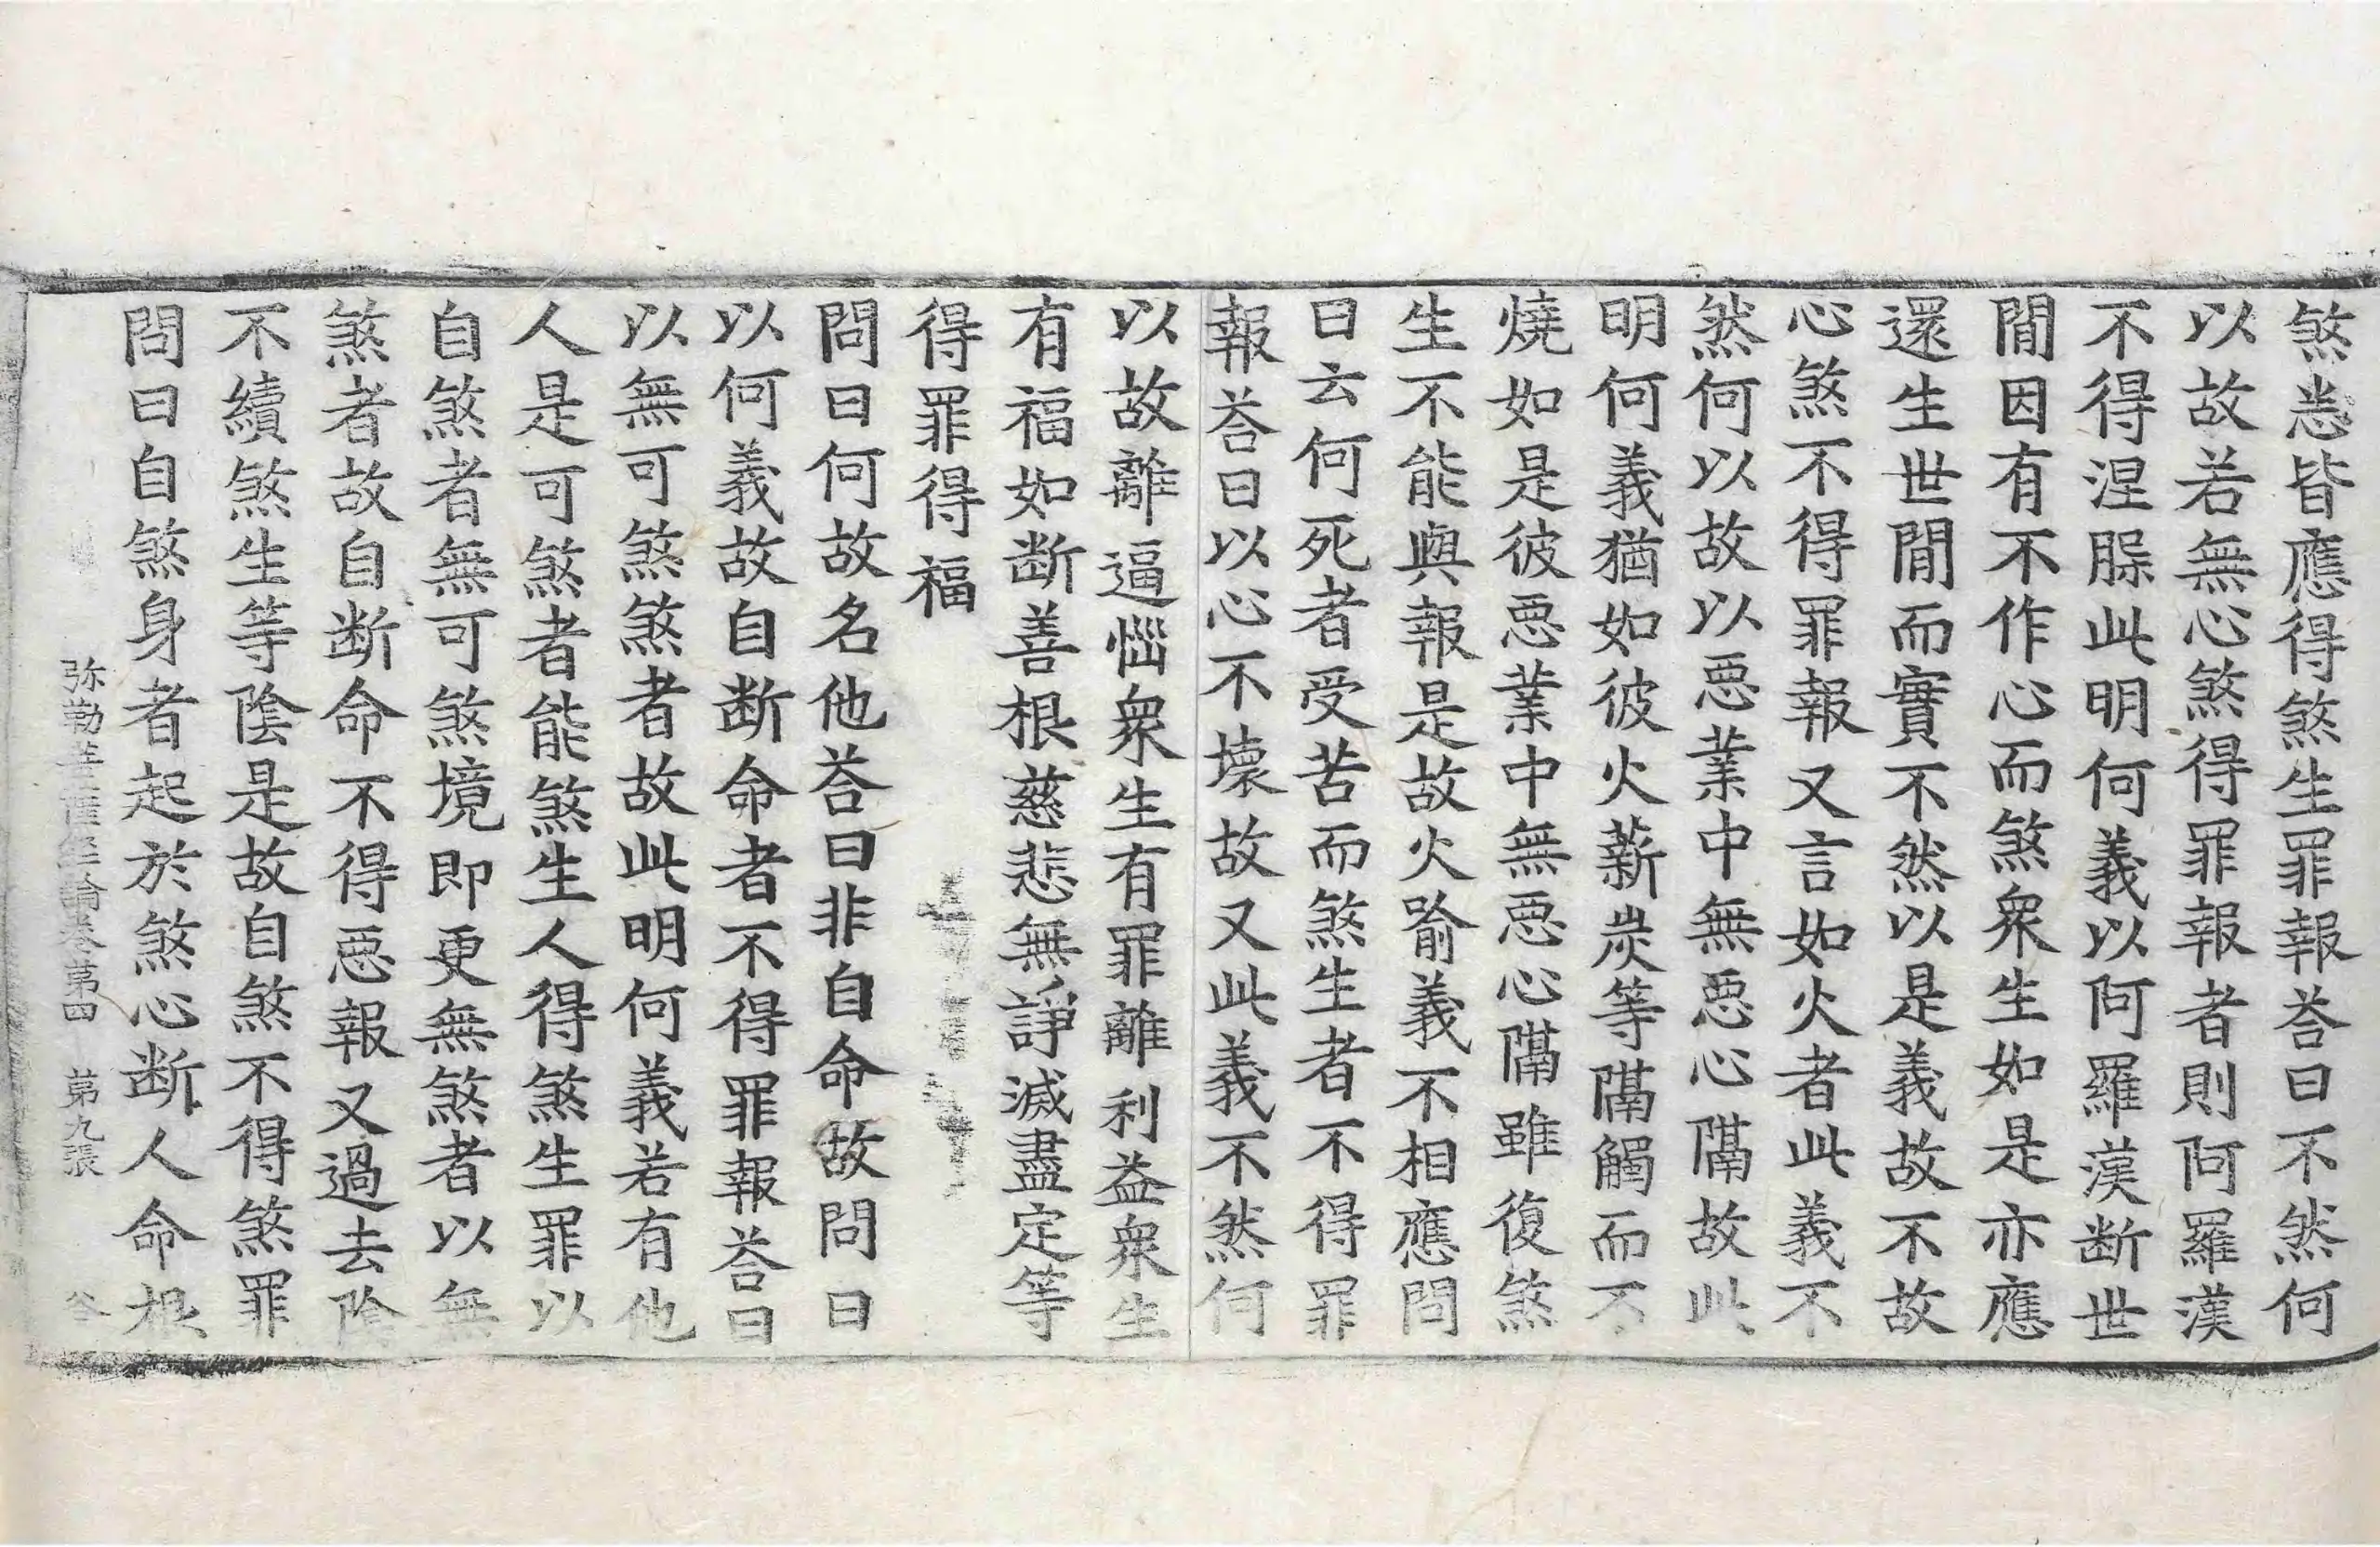 煞恙皆應得煞生罪報荅曰不然何
以故若無心煞得罪報者則阿羅漢
不得涅脲此明何義以阿羅漢断世
間因有不作心而煞衆生如是亦應
還生世間而實不然以是義故不故
心煞不得罪報又言如火者此義不
然何以故以惡業中無惡心隔故此
明何義猶如彼火薪炭等隔觸而不
燒如是彼惡業中無惡心隔雖復煞
生不能與報是故火喻義不相應問
曰云何死者受苦而煞生者不得罪
報荅曰以心不壞故又此義不然何
以故離逼惱衆生有罪離利益衆生
有福如断善根慈悲無諍滅盡定等
得罪得福
問曰何故名他荅曰非自命故問曰
以何義故自断命者不得罪報荅曰
以無可煞煞者故此明何義若有他
人是可煞者能煞生人得煞生罪以
自煞者無可煞境即更無煞者以無
煞者故自断命不得惡報又過去陰
不續煞生等陰是故自煞不得煞罪
問曰自煞身者起於煞心断人命根
弥勒菩薩經論卷第四 第九張 谷